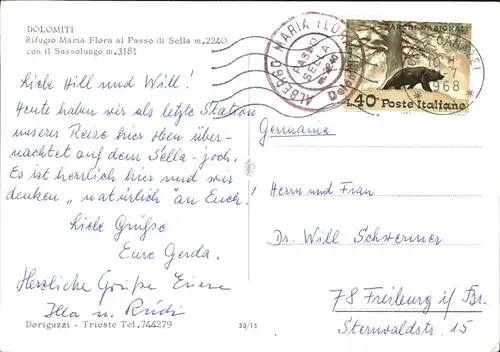 DOLOMITI
Rifugio Maria Flora al Passo di Sella m.2240
con il Sassolungo m.3181
ALBERGO MARIA FLORA
PASSO
SELLA
m. 2240
PARCHI NAZIONALI
L.40 Poste Italiane
1968
Liebe Hill und Will!
Heute haben wir als letzte Station
unserer Reise hier oben über-
nachtet auf dem Sella-joch.
Es ist herrlich hier und wir
denken „natürlich" an Euch!
Liebe Grüße
Eure Gerda.
Herzliche Grüße Eure
Illa u. Rüdi
Doriguzzi - Trieste Tel.744279
33/15
Germania
Herrn und Frau
Dr. Will Schwermer
78 Freiburg i/Br.
Sternwaldstr. 15